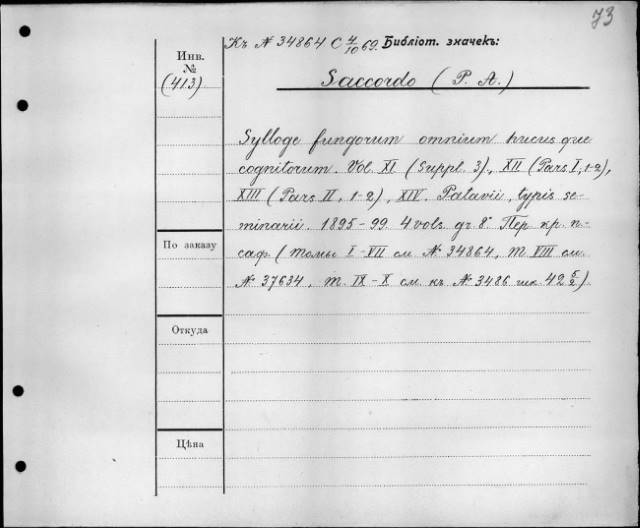 73
Къ № 34864 C 4/10 69. Библіот. значекъ:
Инв.
№
(413)
Saccordo (P. A.)
Sylloge fungorum omnium hucus que
cognitorum. Vol. XI (Suppl. 3), XII (Pars I, 1-2),
XIII (Pars II, 1-2), XIV. Patavii, typis se-
minarii. 1895-99. 4 vols 8°. Пер. кр. п-
саф. (томы I-VII см. № 34864, т. VIII см.
№ 37634, т. IX-X см. къ № 3486 шк. 42 5/2)
По заказу
Откуда
Цѣна